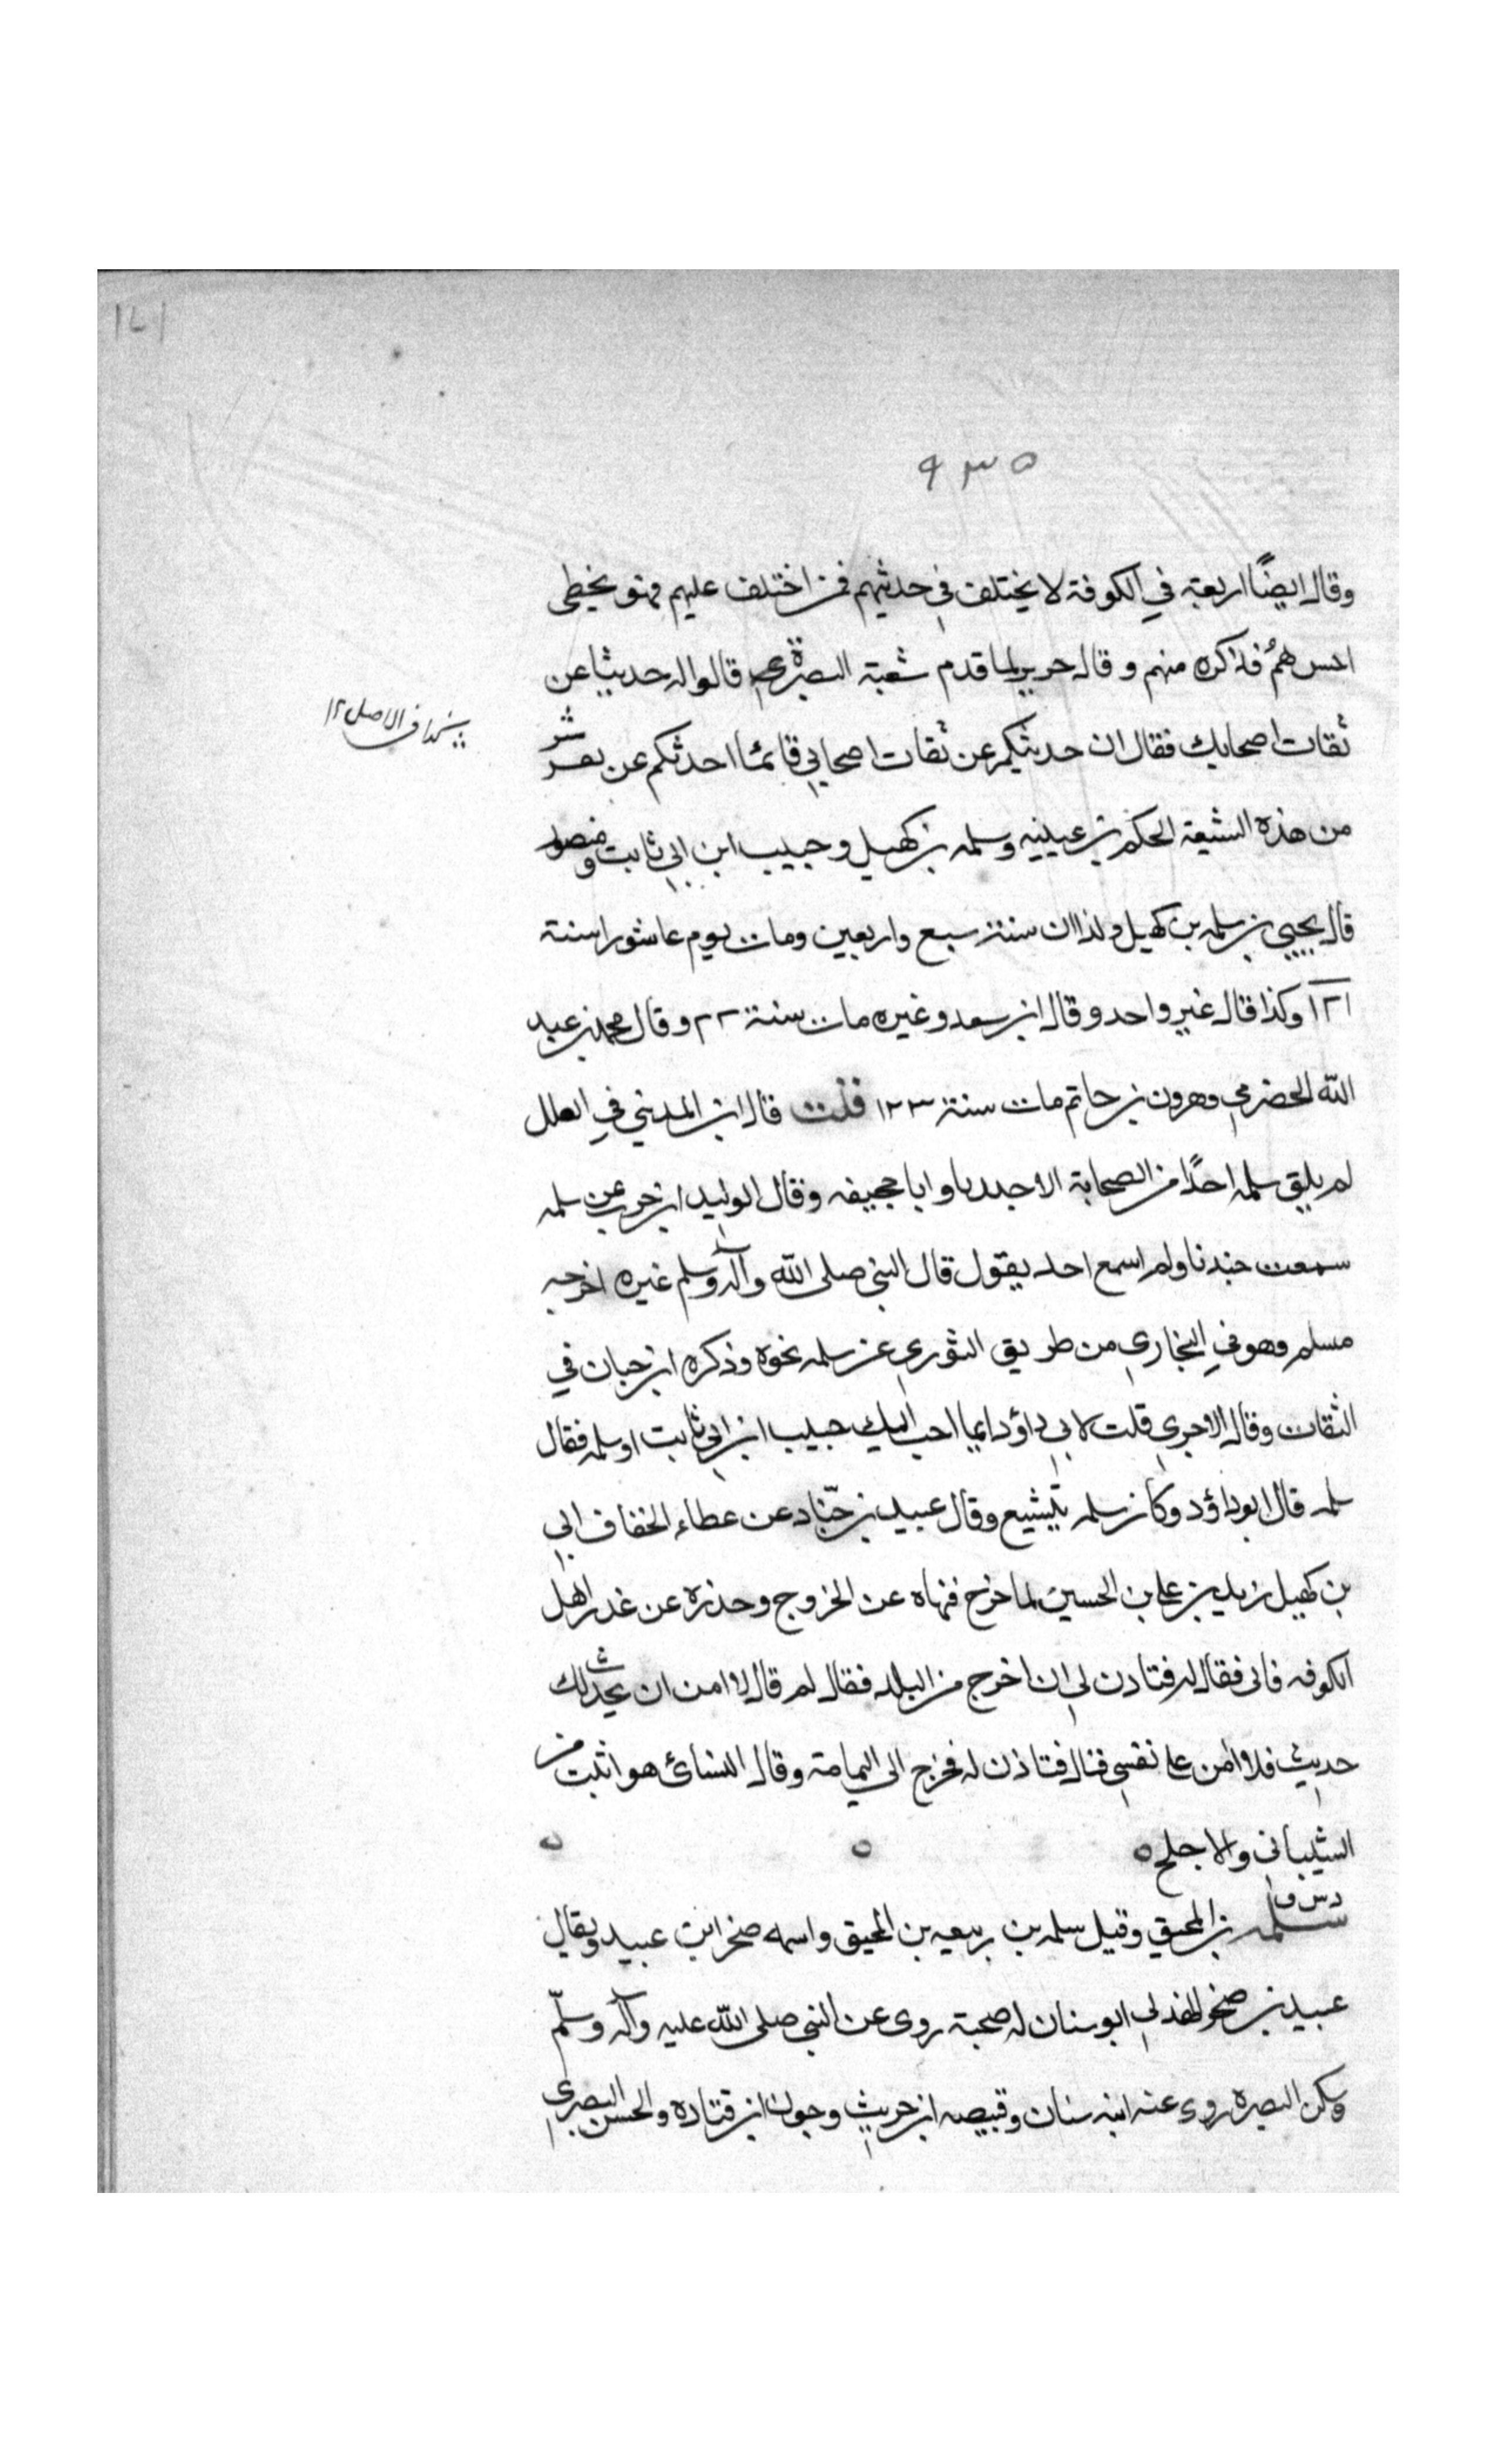 ١٧١
٩٣٥
وقال ايضًا اربعة في الكوفة لا يختلف في حديثهم فمن اختلف عليهم فهو يخطى
هم فذكره منهم وقال جرير لما قدم شعبة البصرة قالوا له حدثنا عن
ثقات اصحابك فقال ان حدثتكم عن ثقات اصحابي فانما احدثكم عن نفر
كذا في الاصل ١٢
من هذه الشيعة الحكم بن عيينه وسلمه بن كهيل وحبيب ابن ابي ثابت ومنصور
قال يحيى بن سلمه بن كهيل ولد ابى سنة سبع واربعين ومات يوم عاشورا سنة
١٢١ وكذا قال غير واحد وقال ابن سعد وغيره مات سنة ٢٢ وقال محمد بن عبد
الله الحضرمي وهرون بن حاتم مات سنة ١٢٣ قلت قال ابن المديني في العلل
لم يلق سلمه احدًا من الصحابة الا جندبا وابا جحيفه وقال الوليد ابن حرب عن سلمه
سمعت جندبا ولم اسمع احد يقول قال النبي صلى الله وآله وسلم غيره اخرجه
مسلم وهو في البخاري من طريق الثوري عن سلمه نحوه وذكره ابن حبان في
الثقات وقال الاجري قلت لابي داؤد ايما احب اليك حبيب ابن ابي ثابت او سلمه فقال
سلمه قال ابو داؤد وكان سلمه يتشيع وقال عبيد بن جنّاد عن عطاء الخفاف اتى
بن كهيل زيد بن على بن الحسين لما خرج فنهاه عن الخروج وحذره عن غدر اهل
الكوفه فابى فقال له فتاذن لي ان اخرج من البلد فقال لم قال لا امن ان يحدث لك
حديث فلا آمن على نفسي قال فتاذن له فخرج الى اليمامة وقال النسائ هو اثبت من
الشيباني والاجلح ٥ ٥ ٥
د س ق
سلمه بن المحبق وقيل سلمه بن ربيعه بن المحبق واسمه صخر ابن عبيد ويقال
عبيد بن صخر الهذلي ابو سنان له صحبة روى عن النبي صلى الله عليه وآله وسلّم
وسكن البصره روى عنه ابنه سنان وقبيصه ابن حريث وجون ابن قتاده والحسن البصرى